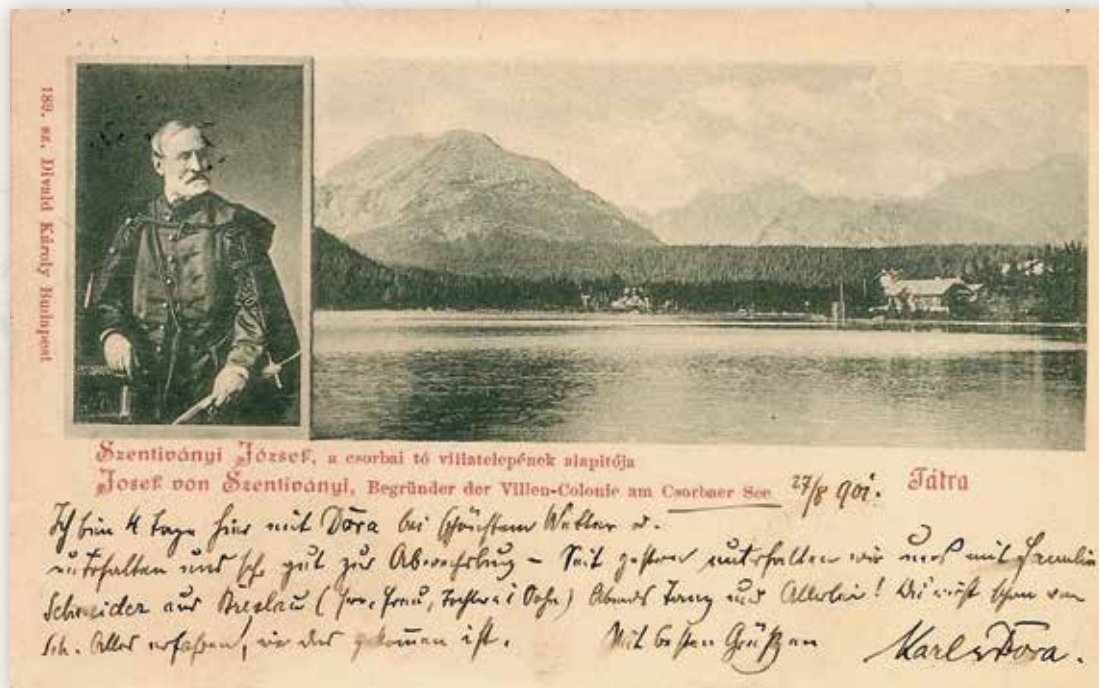 189. sz. Divald Károly Budapest
Szentiványi József, a csorbai tó villatelepének alapitója
Josef von Szentiványi, Begründer der Villen-Colonie am Csorbaer See 27/8 901. Tátra
Ich bin 4 Tage hier mit Dora bei schönstem Wetter u.
unterhalten uns sehr gut zur Abwechslung – Seit gestern unterhalten wir uns mit Familie
Schneider aus Breslau (Frau, Tochter Sohn) Abends Tanz und Allerlei! Du wirst schon von
Sch. Alles erfahren, wie das gekommen ist. Mit besten Grüßen Karl u Dora.